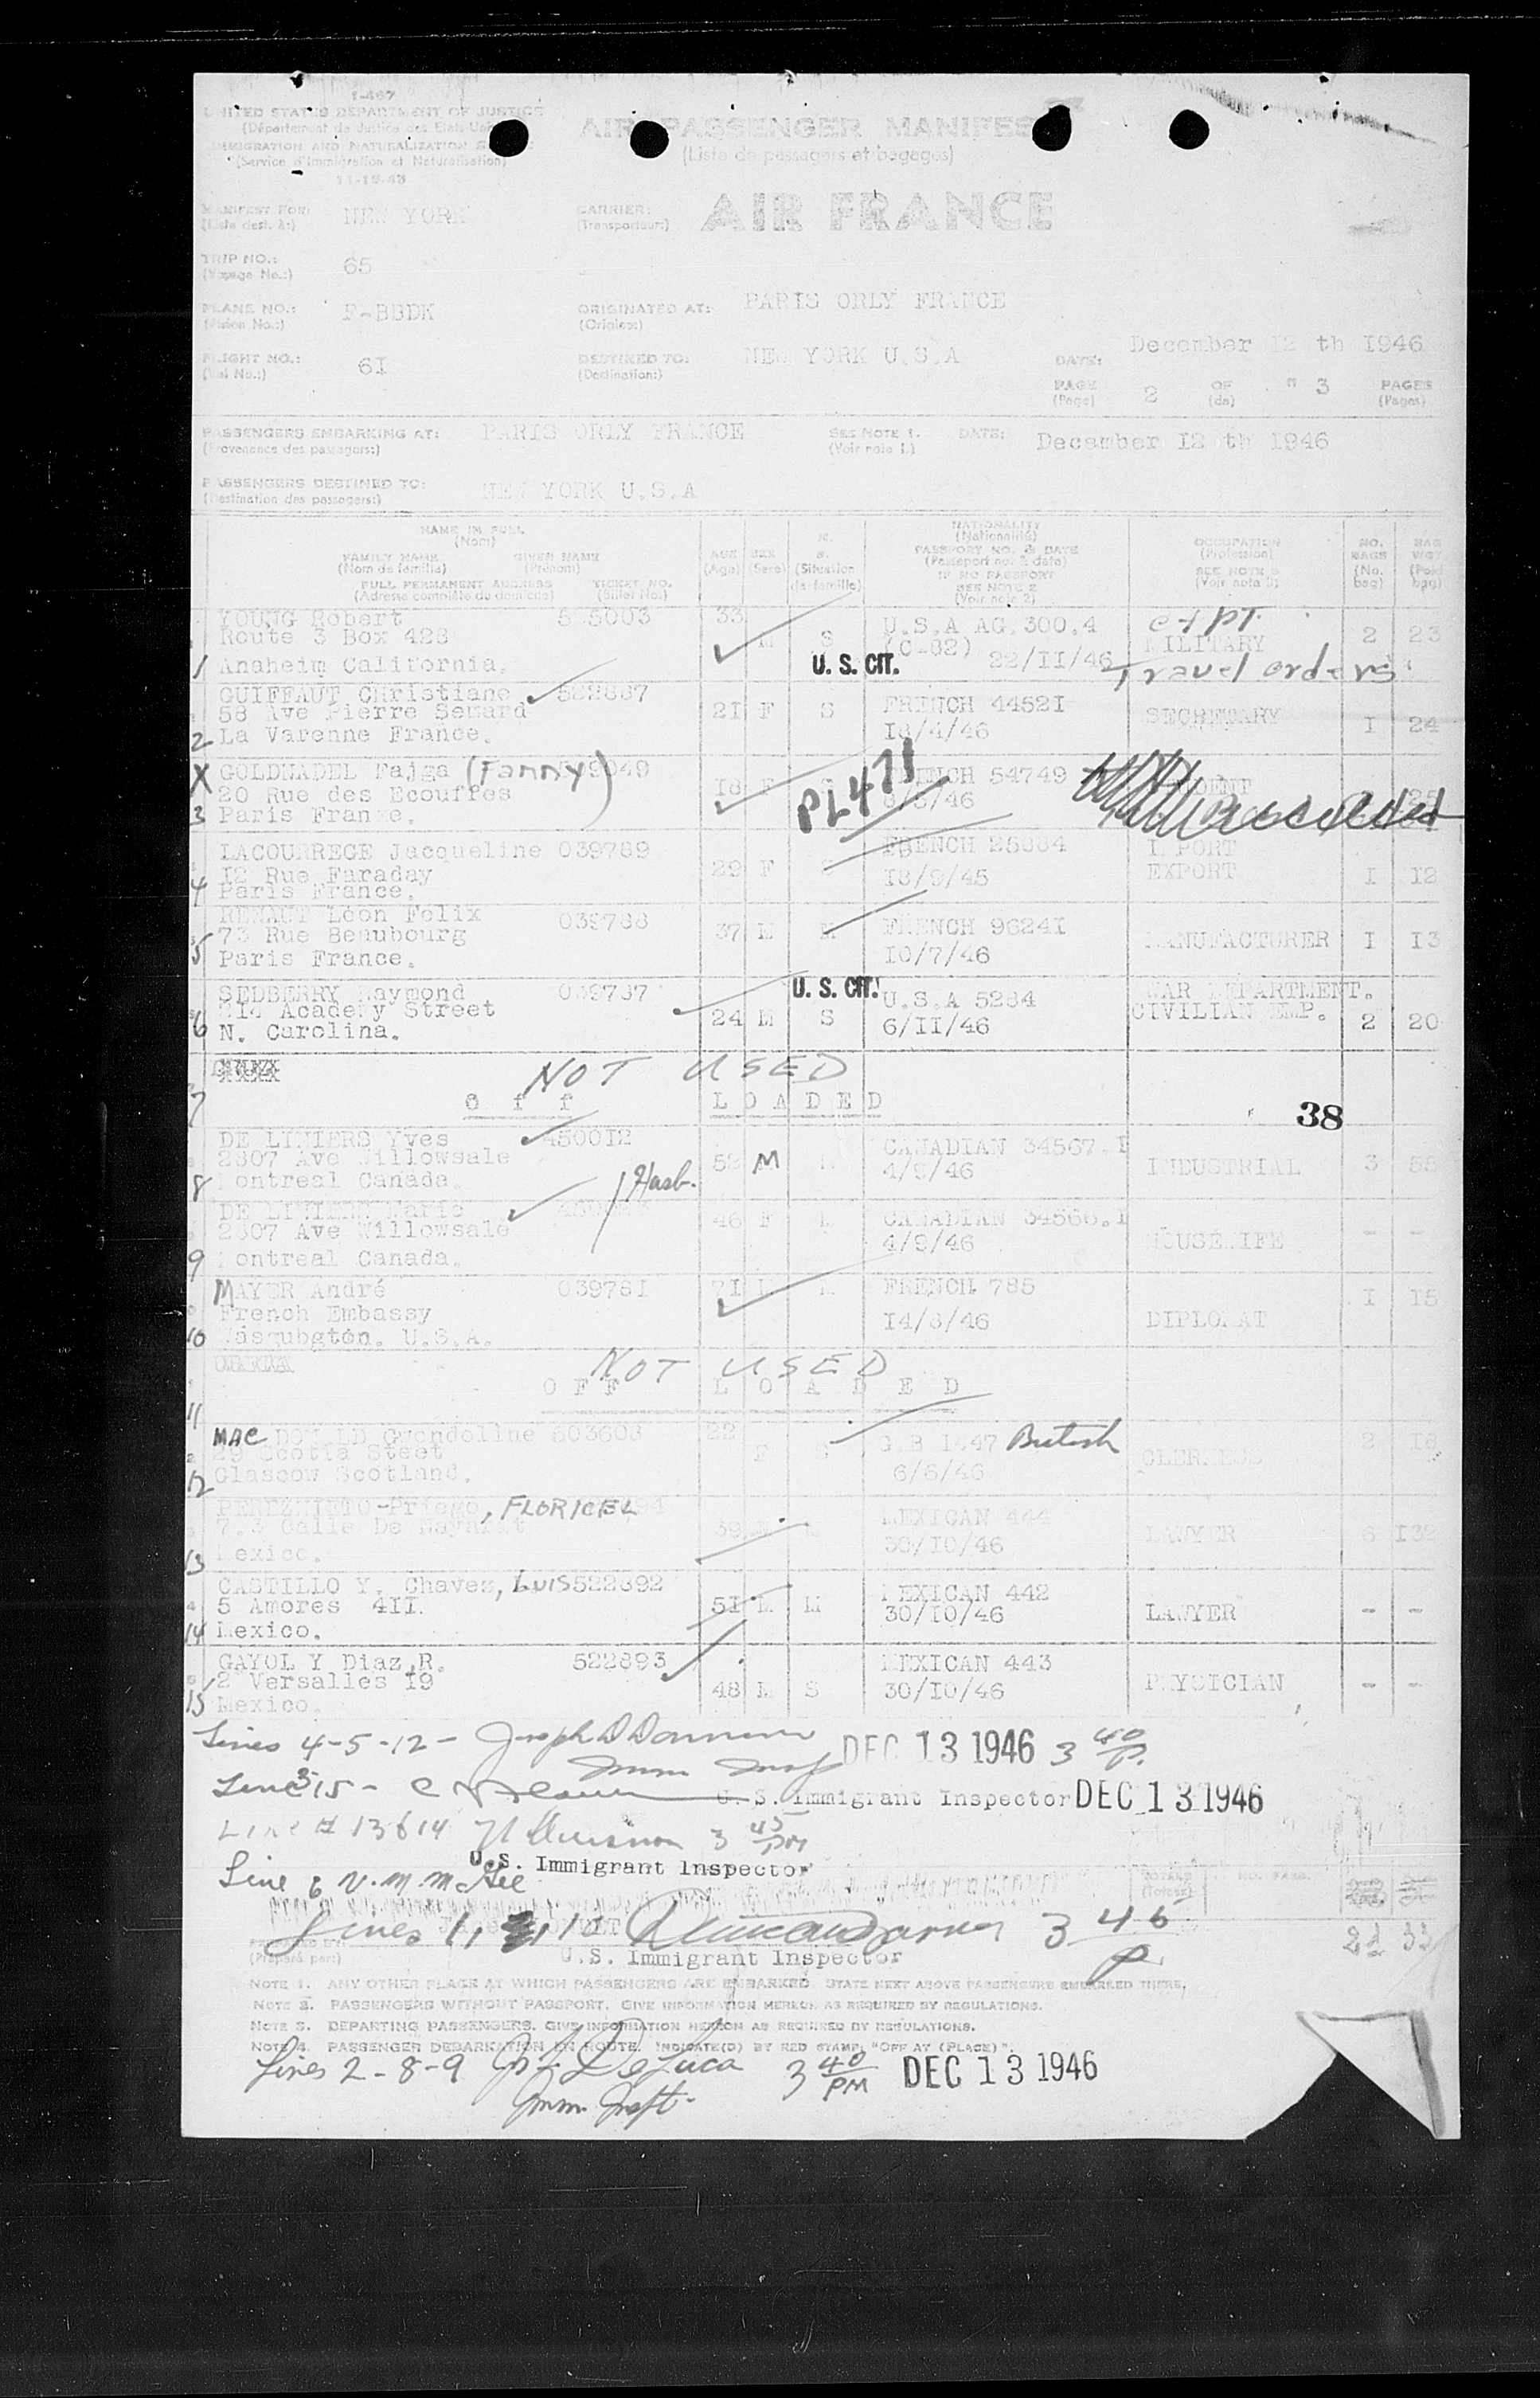 I-467
UNITED STATES DEPARTMENT OF JUSTICE
(Département de Justice des Etats Unis)
IMMIGRATION AND NATURALIZATION
(Service d'Immigration et Naturalisation)
11-15-43
AIR PASSENGER MANIFEST
(Liste de passagers et bagages)
MANIFEST FOR: NEW YORK
(Liste dest. à:)
CARRIER: AIR FRANCE
(Transporteur:)
TRIP NO.: 65
(Voyage No.:)
PLANE NO.: F-BBDK
(Avion No.:)
ORIGINATED AT: PARIS ORLY FRANCE
(Origine:)
FLIGHT NO.: 6I
(Vol No.:)
DESTINED TO: NEW YORK U.S.A
(Destination:)
DATE: December I2 th I946
PAGE 2 OF " 3 PAGES
(Page) (de) (Pages)
PASSENGERS EMBARKING AT: PARIS ORLY FRANCE SEE NOTE 1. DATE: December I2 th I946
(Provenance des passagers:) (Voir note 1.)
PASSENGERS DESTINED TO: NEW YORK U.S.A
(Destination des passagers:)
NAME IN FULL
(Nom)
FAMILY NAME GIVEN NAME
(Nom de famille) (Prénom)
FULL PERMANENT ADDRESS TICKET NO.
(Adresse complète du domicile) (Billet No.)
AGE SEX M. S.
(Age) (Sexe) (Situation de famille)
NATIONALITY
(Nationalité)
PASSPORT NO. & DATE
(Passeport no. & date)
IF NO PASSPORT
SEE NOTE 2
(Voir note 2)
OCCUPATION
(Profession)
SEE NOTE 3
(Voir note 3)
NO. BAGS
(No. bag)
BAG WGT
(Poid bag)
YOUNG Robert 525003 33 M S U.S.A AG.300.4 MILITARY 2 23
Route 3 Box 428 (C-82)
1 Anaheim California. U. S. CIT. 22/II/46 Travel orders
GUIFFAUT Christiane 522887 2I F S FRENCH 4452I SECRETARY I 24
58 Ave Pierre Semard
2 La Varenne France. I8/4/46
X GOLDNADEL Fajga (Fanny) 18 F PL471 FRENCH 54749 STUDENT 25
20 Rue des Ecouffes 8/5/46
3 Paris France.
LACOURREGE Jacqueline 039789 29 F S FRENCH 25884 IMPORT
I2 Rue Faraday I8/9/45 EXPORT I I2
4 Paris France.
RENAUT Léon Felix 039788 37 M M FRENCH 9624I MANUFACTURER I I3
73 Rue Beaubourg
5 Paris France. I0/7/46
SEDBERRY Raymond 039787 U. S. CIT. U.S.A 5284 WAR DEPARTMENT.
214 Academy Street 24 M S CIVILIAN EMP. 2 20
6 N. Carolina. 6/II/46
NOT USED
7 O f f L O A D E D
38
DE LINIERS Yves 450012 52 M M CANADIAN 34567.I INDUSTRIAL 3 55
2807 Ave Willowsale 4/9/46
8 Montreal Canada. Husb.
DE LINIERS Marie 46 F M CANADIAN 34566.I HOUSEWIFE - -
2807 Ave Willowsale 4/9/46
9 Montreal Canada.
MAYER André 03978I 7I M M FRENCH 785 DIPLOMAT I I5
French Embassy
10 Wasgubgton. U.S.A. I4/8/46
NOT USED
11 O F F L O A D E D
MAC DONALD Gwendoline 503608 22 F S G.B I447 British CLERKESS 2 I8
29 Scotia Steet
12 Glascow Scotland. 6/6/46
PEREZNIETO-Priego, FLORICEL 39 MEXICAN 444 LAWYER 6 I32
Calle De Nayarit 30/I0/46
13 Mexico.
CASTILLO Y. Chavez, LUIS 522892 5I M M MEXICAN 442 LAWYER - -
5 Amores 4II. 30/I0/46
14 Mexico.
GAYOL Y Diaz,R. 522893 48 M S MEXICAN 443 PHYSICIAN - -
2 Versalles I9 30/I0/46
15 Mexico.
Lines 4-5-12- DEC 13 1946 3 40 P.
Imm Insp
U. S. Immigrant Inspector DEC 13 1946
Line # 13 & 14 3 45 PM
U. S. Immigrant Inspector
Line 6 V. M. McGee
Lines 1, 10 3 45 P.
U. S. Immigrant Inspector
NOTE 1. ANY OTHER PLACE AT WHICH PASSENGERS ARE EMBARKED STATE NEXT ABOVE PASSENGERS EMBARKED THERE,
NOTE 2. PASSENGERS WITHOUT PASSPORT. GIVE INFORMATION HEREON AS REQUIRED BY REGULATIONS.
NOTE 3. DEPARTING PASSENGERS. GIVE INFORMATION HEREON AS REQUIRED BY REGULATIONS.
NOTE 4. PASSENGER DEBARKATION EN ROUTE. INDICATE(D) BY RED STAMP: "OFF AT (PLACE)".
Lines 2-8-9 DeLuca 3 40 PM DEC 13 1946
Imm. Inspt.